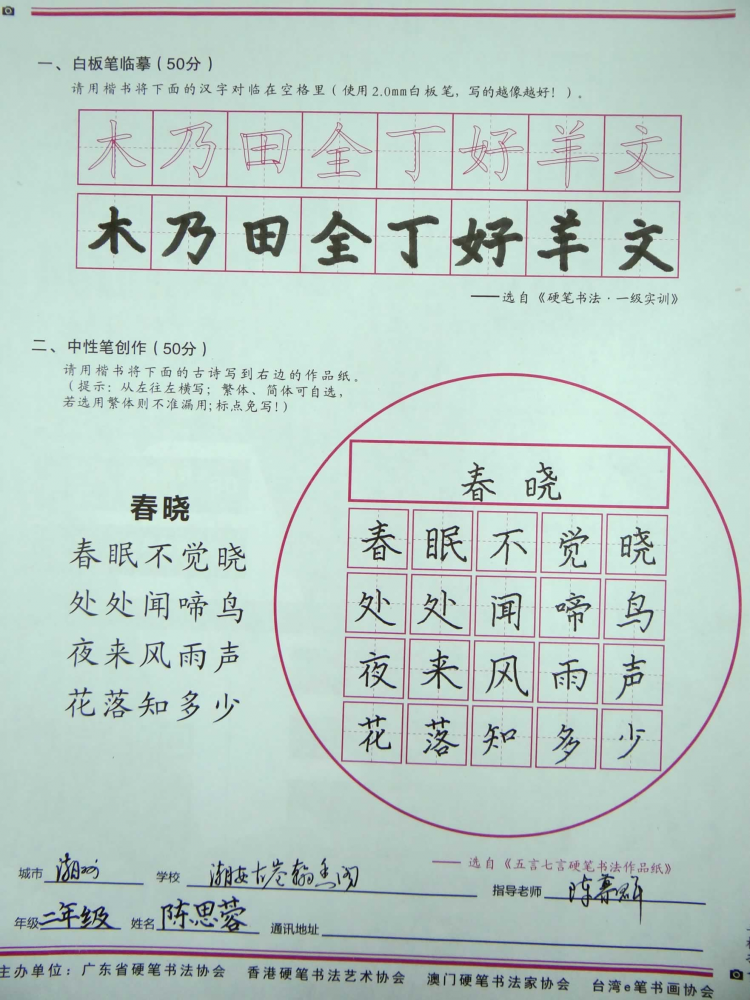 一、白板笔临摹(50分)
请用楷书将下面的汉字对临在空格里(使用2.0mm白板笔,写的越像越好!)。
木乃田全丁好羊文
木乃田全丁好羊文
——选自《硬笔书法·一级实训》
二、中性笔创作(50分)
请用楷书将下面的古诗写到右边的作品纸。
(提示:从左往左横写;繁体、简体可自选,
若选用繁体则不准漏用;标点免写!)
春晓
春眠不觉晓
处处闻啼鸟
夜来风雨声
花落知多少
春晓
春眠不觉晓
处处闻啼鸟
夜来风雨声
花落知多少
——选自《五言七言硬笔书法作品纸》
城市 潮州 学校 潮安古巷翰香阁 指导老师 陈
年级 二年级 姓名 陈思蓉 通讯地址
主办单位:广东省硬笔书法协会 香港硬笔书法艺术协会 澳门硬笔书法家协会 台湾e笔书画协会